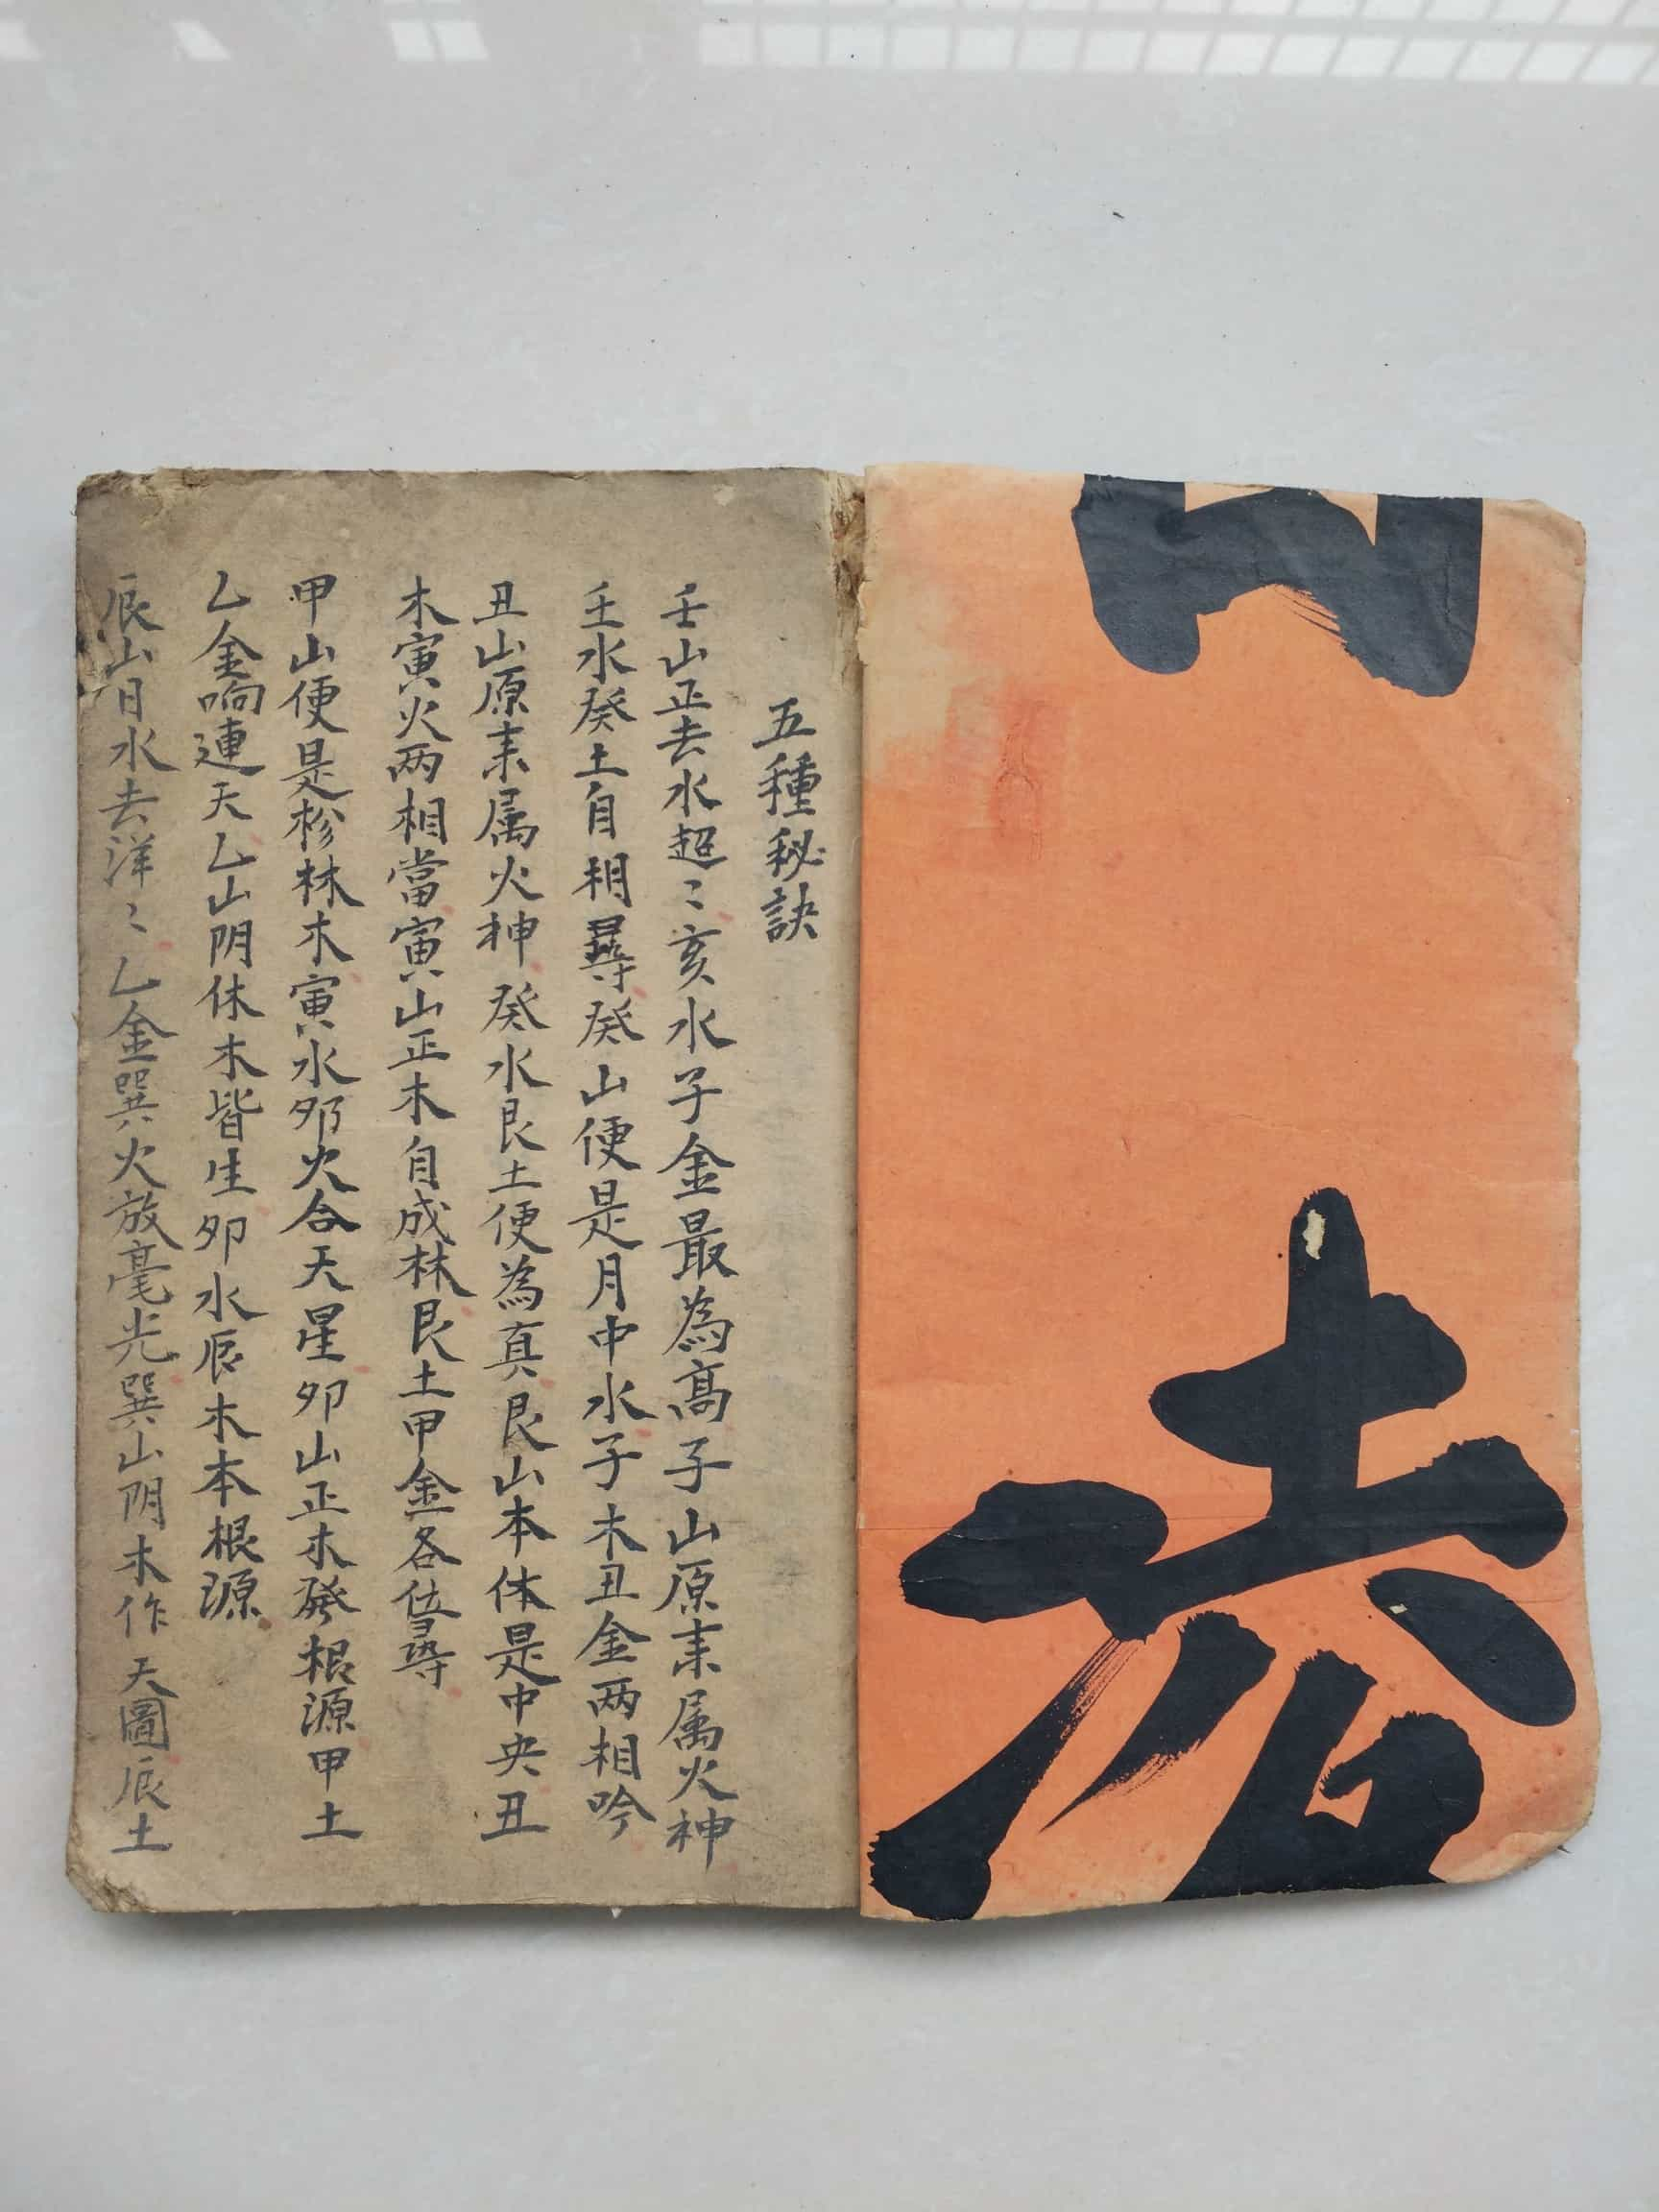 五種秘訣
壬山正去水超〻亥水子金最為高子山原来属火神
壬水癸土自相尋癸山便是月中水子木丑金两相吟
丑山原来属火神癸水艮土便為真艮山本体是中央丑
木寅火两相當寅山正木自成林艮土甲金各位尋
甲山便是杉林木寅水夘火合天星夘山正木發根源甲土
乙金响連天乙山阴体木皆生夘水辰木本根源
辰山日水去洋〻乙金巽火放毫光巽山阴木作天圖辰土